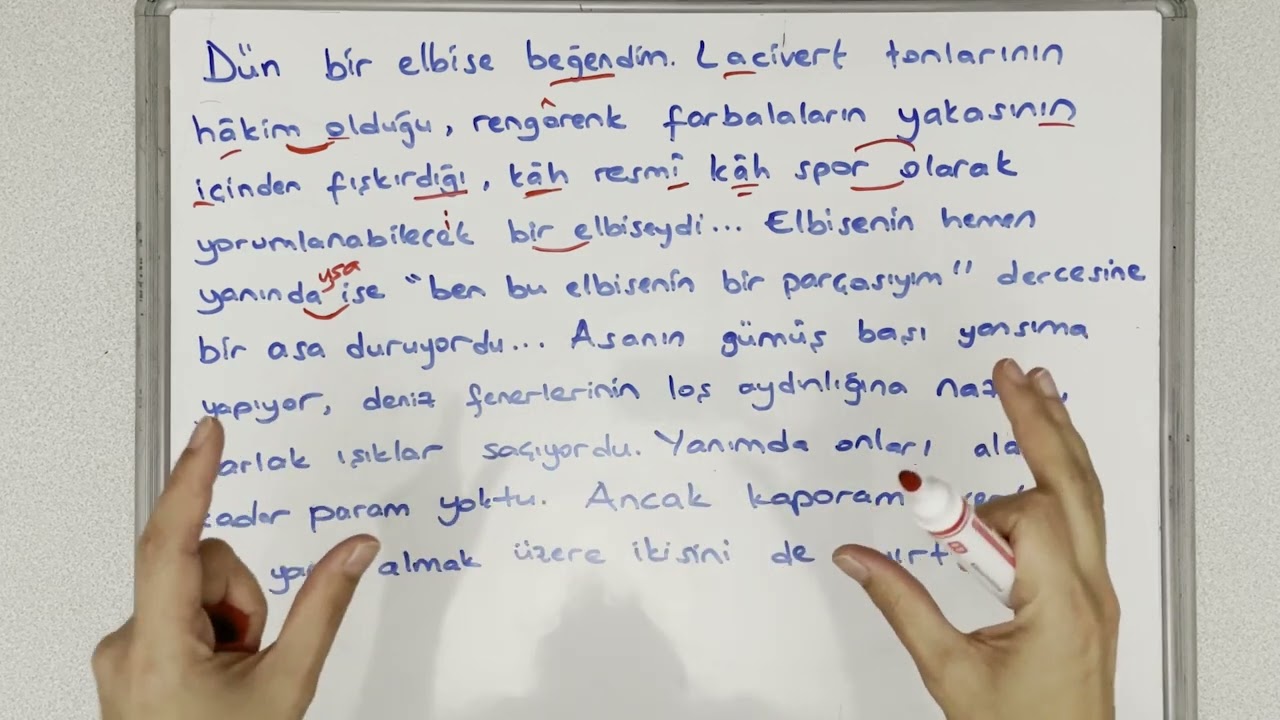 Dün bir elbise beğendim. Lacivert tonlarının
hâkim olduğu, rengârenk farbalaların yakasının
içinden fışkırdığı, kâh resmî kâh spor olarak
yorumlanabilecek bir elbiseydi... Elbisenin hemen
yanında ise ysa "ben bu elbisenin bir parçasıyım" dercesine
bir asa duruyordu... Asanın gümüş başı yansıma
yapıyor, deniz fenerlerinin loş aydınlığına
ışıklar saçıyordu. Yanımda onları
param yoktu. Ancak kaporam
almak üzere ikisini de